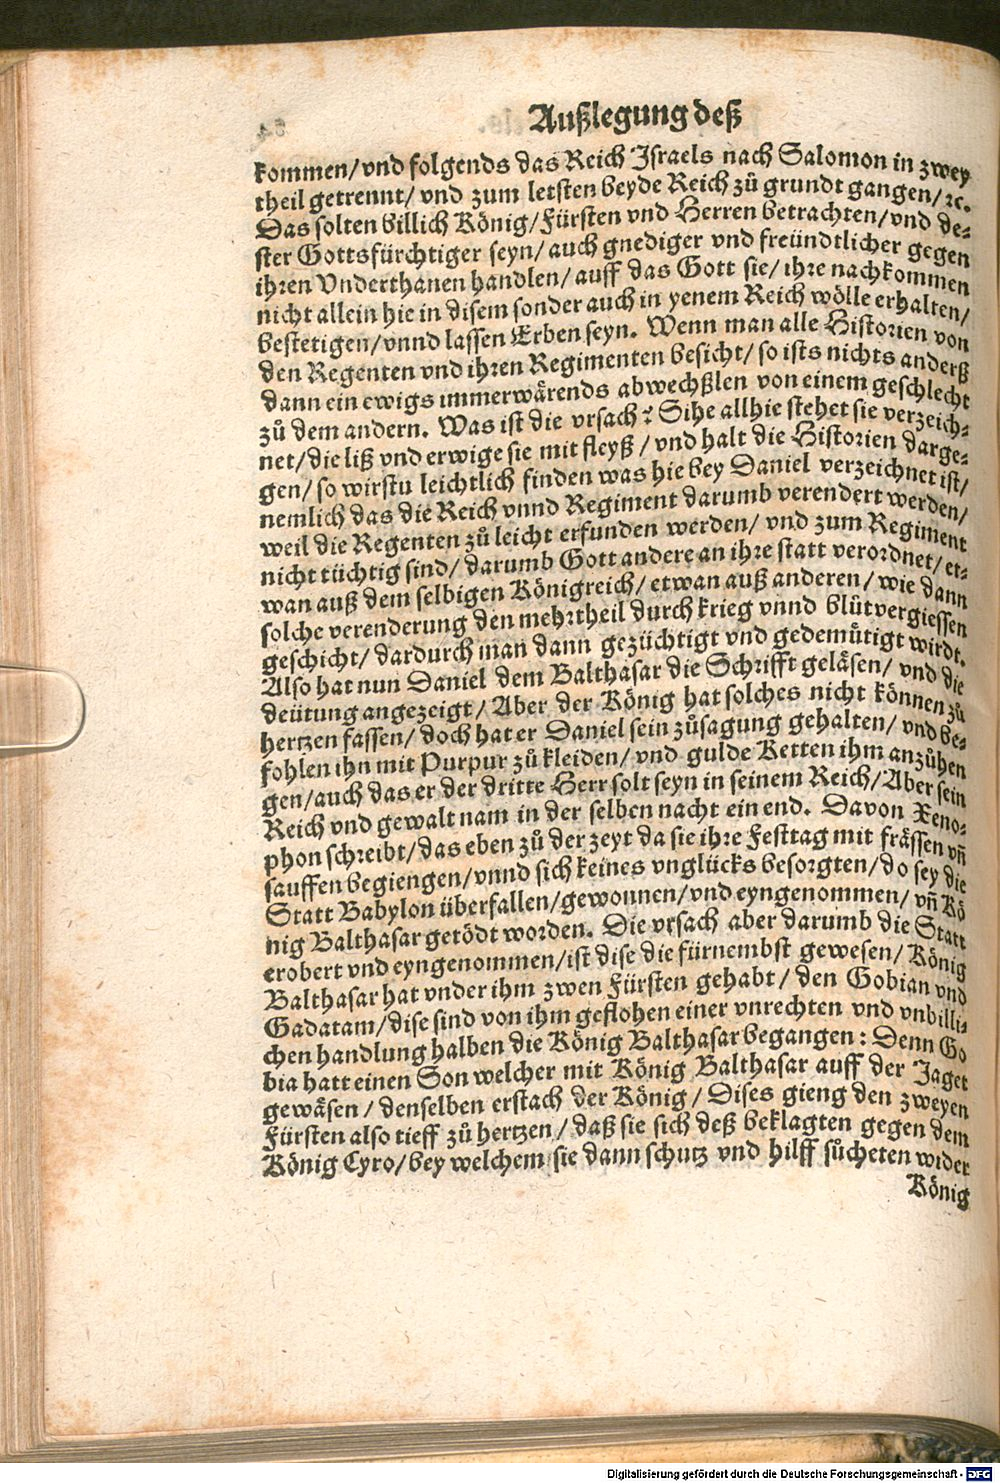 Außlegung deß
kommen/ vnd folgends das Reich Israels nach Salomon in zwey
theil getrennt/ vnd zum letsten beyde Reich zů grundt gangen/ ꝛc.
Das solten billich König/ Fürsten vnd Herren betrachten/ vnd de⸗
ster Gottsfürchtiger seyn/ auch gnediger vnd freündtlicher gegen
ihren Vnderthanen handlen/ auff das Gott sie/ ihre nachkommen
nicht allein hie in disem sonder auch in yenem Reich wölle erhalten/
bestetigen/ vnnd lassen Erben seyn. Wenn man alle Historien von
den Regenten vnd ihren Regimenten besicht/ so ists nichts anderß
dann ein ewigs immerwärends abwechßlen von einem geschlecht
zů dem andern. Was ist die vrsach? Sihe allhie stehet sie verzeich⸗
net/ die liß vnd erwige sie mit fleyß/ vnd halt die Historien darge⸗
gen/ so wirstu leichtlich finden was hie bey Daniel verzeichnet ist/
nemlich das die Reich vnnd Regiment darumb verendert werden/
weil die Regenten zů leicht erfunden werden/ vnd zum Regiment
nicht tüchtig sind/ darumb Gott andere an ihre statt verordnet/ et⸗
wan auß dem selbigen Königreich/ etwan auß anderen/ wie dann
solche verenderung den mehrtheil durch krieg vnnd blůtvergiessen
geschicht/ dardurch man dann gezüchtigt vnd gedemütigt wirdt.
Also hat nun Daniel dem Balthasar die Schrifft geläsen/ vnd die
deütung angezeigt/ Aber der König hat solches nicht können zů
hertzen fassen/ doch hat er Daniel sein zůsagung gehalten/ vnd be⸗
fohlen ihn mit Purpur zů kleiden/ vnd gulde Ketten ihm anzůhen
gen/ auch das er der dritte Herr solt seyn in seinem Reich/ Aber sein
Reich vnd gewalt nam in der selben nacht ein end. Davon Xeno⸗
phon schreibt/ das eben zů der zeyt da sie ihre Festtag mit frässen vñ
sauffen begiengen/ vnnd sich keines vnglücks besorgten/ do sey die
Statt Babylon überfallen/ gewonnen/ vnd eyngenommen/ vñ Kö
nig Balthasar getödt worden. Die vrsach aber darumb die Statt
erobert vnd eyngenommen/ ist dise die fürnembst gewesen/ König
Balthasar hat vnder ihm zwen Fürsten gehabt/ den Gobian vnd
Gadatam/ dise sind von ihm geflohen einer vnrechten vnd vnbilli⸗
chen handlung halben die König Balthasar begangen: Denn Go
bia hatt einen Son welcher mit König Balthasar auff der Jaget
gewäsen/ denselben erstach der König/ Dises gieng den zweyen
Fürsten also tieff zů hertzen/ daß sie sich deß beklagten gegen dem
König Cyro/ bey welchem sie dann schutz vnd hilff sůcheten wider
König
Digitalisierung gefördert durch die Deutsche Forschungsgemeinschaft - DFG